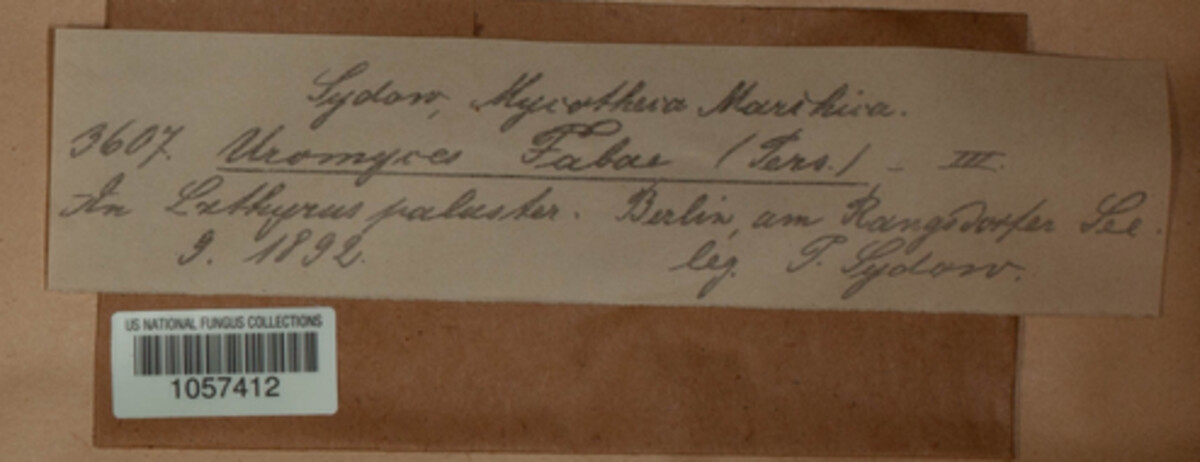 Sydow, Mycotheca Marchica.
3607. Uromyces Fabae (Pers.) - III.
An Lathyrus paluster. Berlin, am Rangsdorfer See.
9. 1892.
leg. P. Sydow.
US NATIONAL FUNGUS COLLECTIONS
1057412